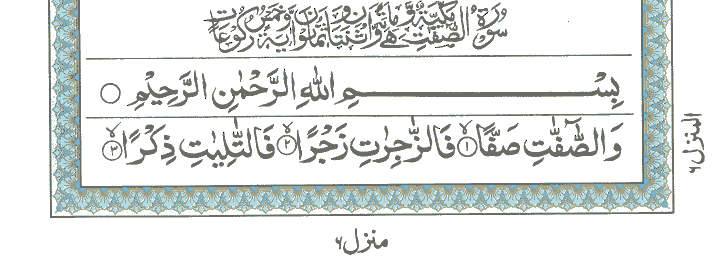 سُوْرَةُ الصّٰٓفّٰتِ مَكِّيَّةٌ وَّهِيَ مِائَةٌ وَّاثْنَتَانِ وَثَمَانُوْنَ اٰيَةً وَّخَمْسُ رُكُوْعَاتٍ
بِسْمِ اللّٰهِ الرَّحْمٰنِ الرَّحِيْمِ ○
وَالصّٰٓفّٰتِ صَفًّا ۙ‏﴿۱﴾ فَالزّٰجِرٰتِ زَجْرًا ۙ‏﴿۲﴾ فَالتّٰلِيٰتِ ذِكْرًا ۙ‏﴿۳﴾
المنزل ٦
منزل ٦